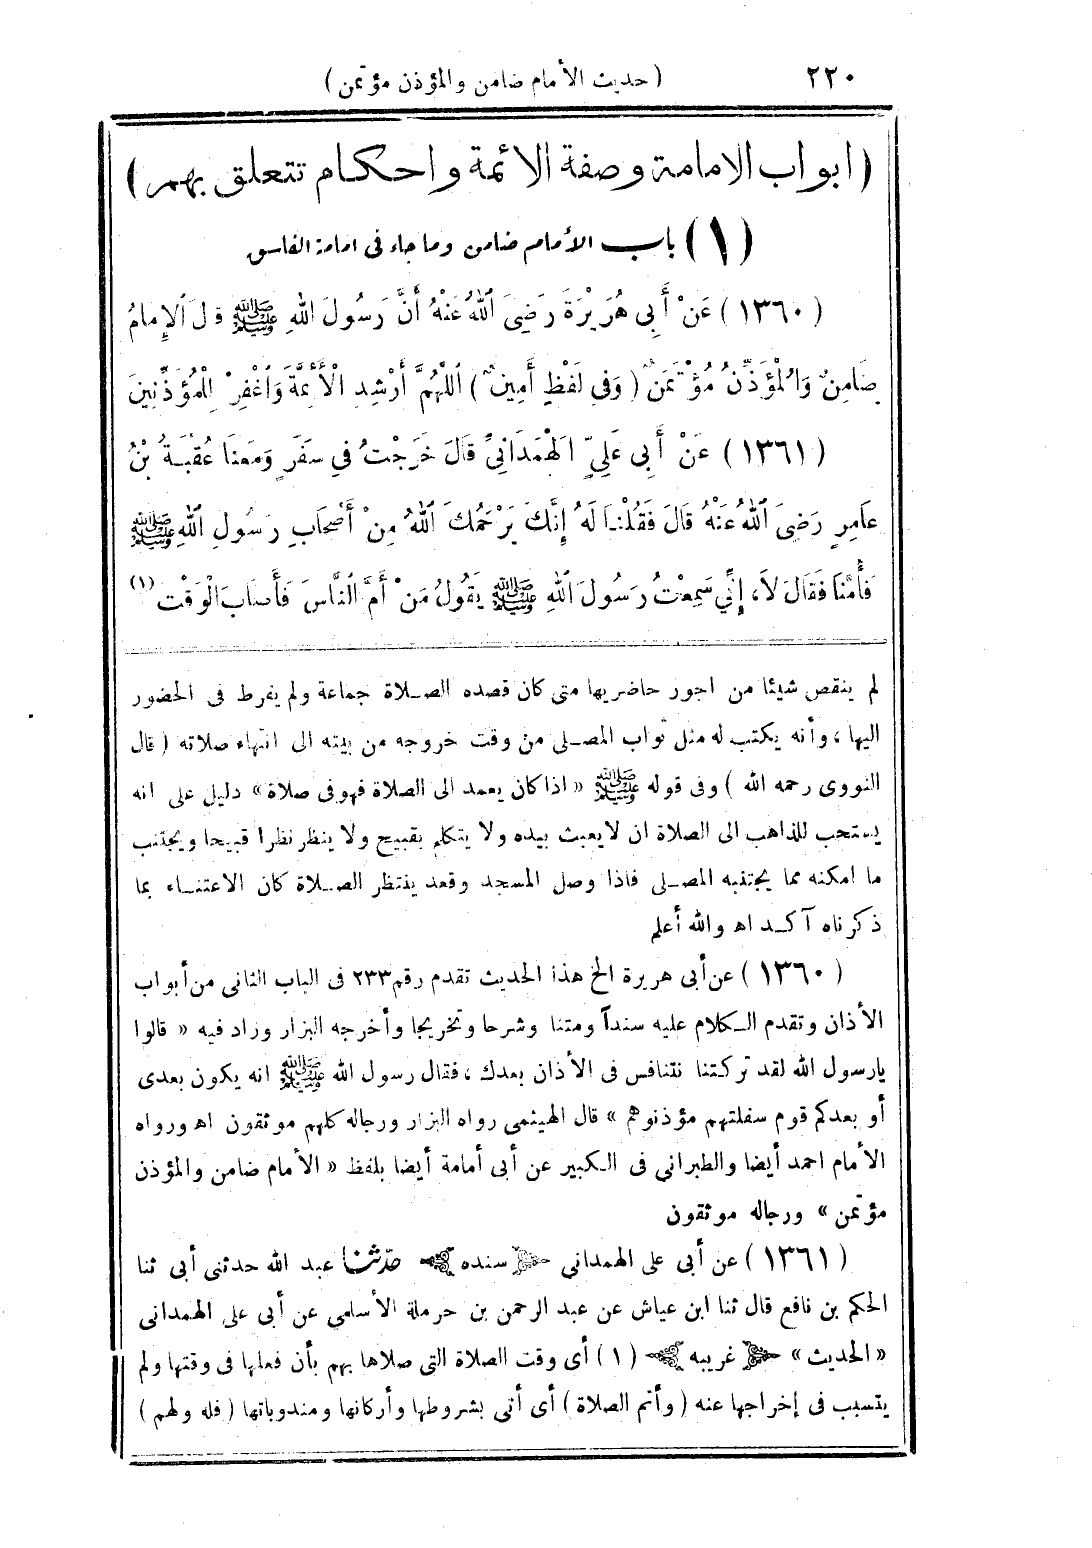 ٢٢٠ ( حديث الأمام ضامن والمؤذن مؤتمن )
( ابواب الامامة وصفة الائمة واحكام تتعلق بهم )
( ١ ) باب الأمام ضامن وما جاء فى امامة الفاسق
( ١٣٦٠ ) عَنْ أَبِى هُرَيْرَةَ رَضِىَ اللهُ عَنْهُ أَنَّ رَسُولَ اللهِ ﷺ قَالَ الإِمَامُ
ضَامِنٌ وَالْمُؤَذِّنُ مُؤْتَمَنٌ ( وَفِى لَفْظٍ أَمِينٌ ) اَللّٰهُمَّ أَرْشِدِ الْأَئِمَّةَ وَاغْفِرْ لِلْمُؤَذِّنِينَ
( ١٣٦١ ) عَنْ أَبِى عَلِىٍّ الْهَمْدَانِىِّ قَالَ خَرَجْتُ فِى سَفَرٍ وَمَعَنَا عُقْبَةُ بْنُ
عَامِرٍ رَضِىَ اللهُ عَنْهُ قَالَ فَقُلْنَا لَهُ إِنَّكَ يَرْحَمُكَ اللهُ مِنْ أَصْحَابِ رَسُولِ اللهِ ﷺ
فَأُمَّنَا فَقَالَ لاَ، إِنِّى سَمِعْتُ رَسُولَ اللهِ ﷺ يَقُولُ مَنْ أَمَّ النَّاسَ فَأَصَابَ الْوَقْتَ (١)
لم ينقص شيئا من اجور حاضريها متى كان قصده الصلاة جماعة ولم يفرط فى الحضور
اليها ، وأنه يكتب له مثل ثواب المصلى من وقت خروجه من بيته الى انتهاء صلاته ( قال
النووى رحمه الله ) وفى قوله ﷺ « اذا كان يعمد الى الصلاة فهو فى صلاة » دليل على انه
يستحب للذاهب الى الصلاة ان لا يعبث بيده ولا يتكلم بقبيح ولا ينظر نظرا قبيحا ويجتنب
ما امكنه مما يجتنبه المصلى فاذا وصل المسجد وقعد ينتظر الصلاة كان الاعتناء بما
ذكرناه آكد اه والله أعلم
( ١٣٦٠ ) عن أبى هريرة الخ هذا الحديث تقدم رقم ٢٣٣ فى الباب الثانى من أبواب
الأذان وتقدم الكلام عليه سنداً ومتنا وشرحا وتخريجا وأخرجه البزار وزاد فيه « قالوا
يارسول الله لقد تركتنا نتنافس فى الأذان بعدك ، فقال رسول الله ﷺ انه يكون بعدى
أو بعدكم قوم سفلتهم مؤذنوهم » قال الهيثمى رواه البزار ورجاله كلهم موثقون اه ورواه
الأمام احمد أيضا والطبرانى فى الكبير عن أبى أمامة أيضا بلفظ « الأمام ضامن والمؤذن
مؤتمن » ورجاله موثقون
( ١٣٦١ ) عن أبى على الهمدانى سنده حدّثنا عبد الله حدثنى أبى ثنا
الحكم بن نافع قال ثنا ابن عياش عن عبد الرحمن بن حرملة الأسلمى عن أبى على الهمدانى
« الحديث » غريبه ( ١ ) أى وقت الصلاة التى صلاها بهم بأن فعلها فى وقتها ولم
يتسبب فى إخراجها عنه ( وأتم الصلاة ) أى أتى بشروطها وأركانها ومندوباتها ( فله ولهم )